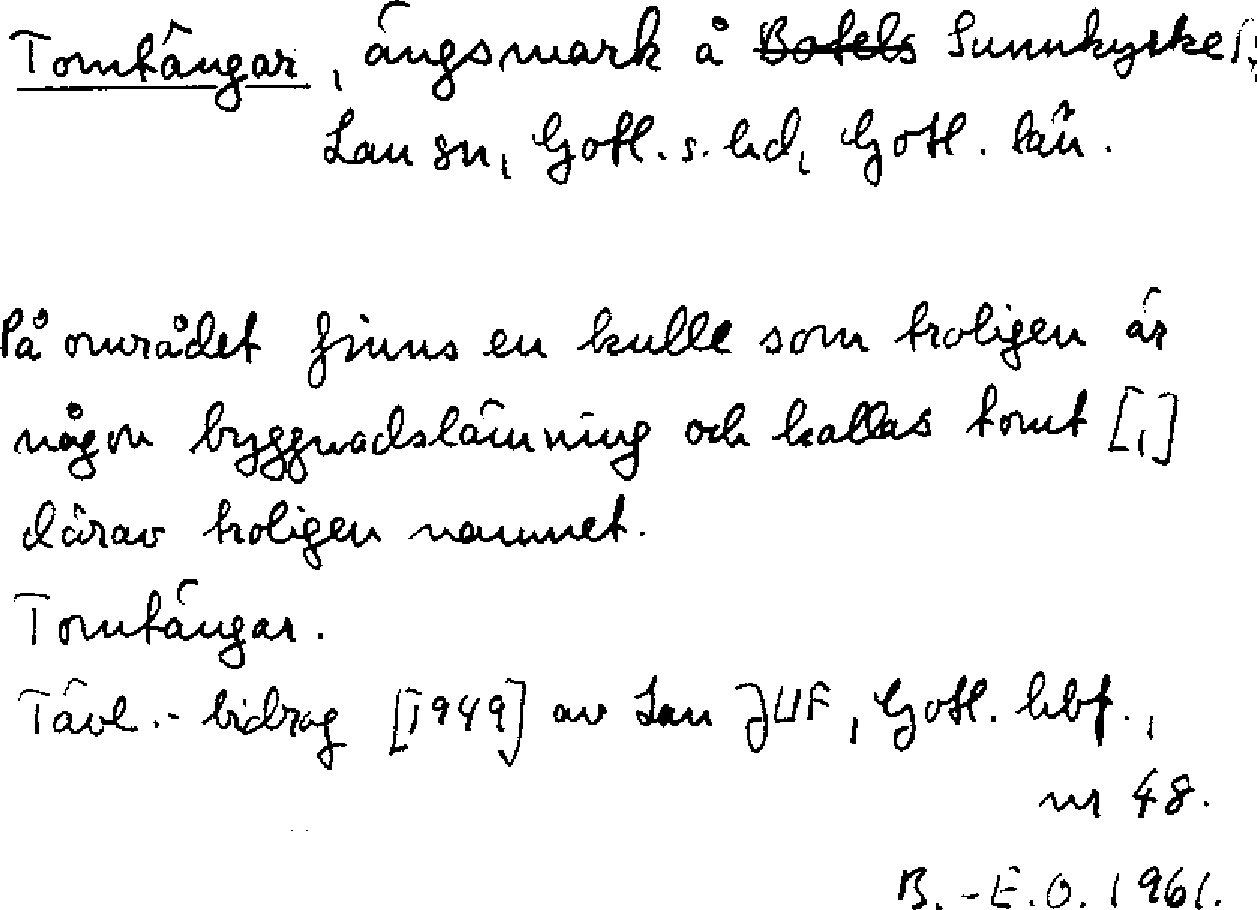 Tomtängar, ängsmark å Botels Sunnkyrke,
Lau sn, Gotl. s. hd, Gotl. län.
På området finns en kulle som troligen är
någon byggnadslämning och kallas tomt [,]
därav troligen namnet.
Tomtängar.
Tävl.-bidrag [1949] av Lau JUF, Gotl. hbf.,
nr 48.
B.-E.O. 1961.